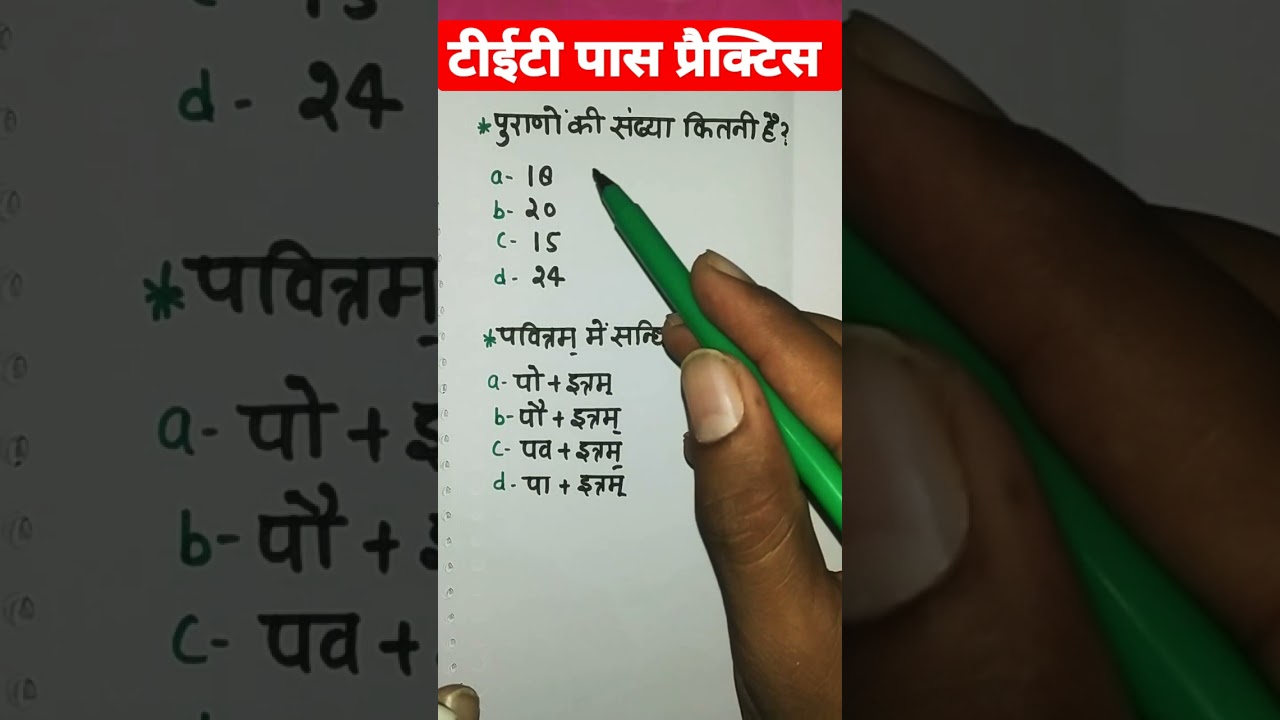 टीईटी पास प्रैक्टिस
*पुराणों की संख्या कितनी है?
a- 18
b- 20
c- 15
d- 24
*पवित्रम् में सन्धि
a- पो + इत्रम्
b- पौ + इत्रम्
c- पव + इत्रम्
d- पा + इत्रम्